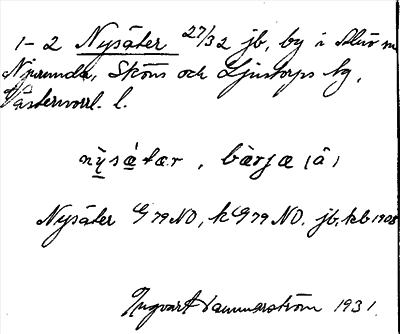 1-2 Nysäter 27/32 jb, by i
Njurunda, Sköns och Ljustorps tg,
Västernorrl. l.
nỳsä̀tær, bærjæ (å)
Nysäter G 79 NO, k G 79 NO. jb, kb 1908
Ingvart Hammarström 1931.